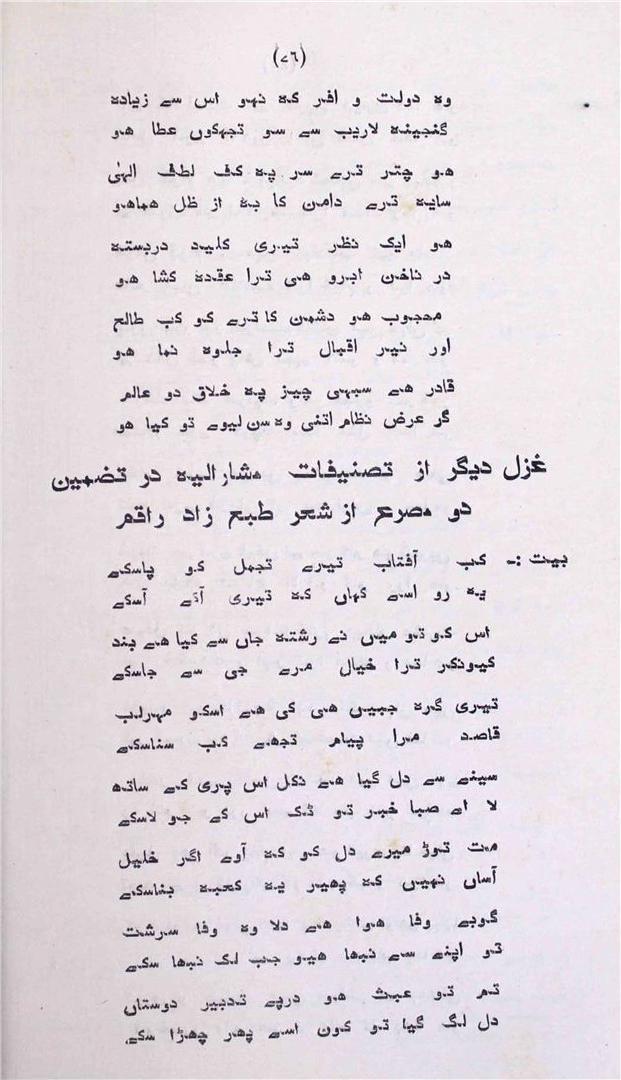 (۷٦)
وہ دولت و افر کہ نہو اس سے زیادہ
گنجینہ لاریب سے سو تجہکوں عطا ھو
ھو چتر ترے سر پہ کف لطف الہٰی
سایہ ترے دامن کا بہ از ظل ھماھو
ھو ایک نظر تیری کلید دربستہ
در ناخن ابرو ھی ترا عقدہ کشا ھو
محجوب ھو دشمن کا ترے کو کب طالع
اور نیر اقبال ترا جلوہ نما ھو
قادر ھے سبہی چیز پہ خلاق دو عالم
گر عرض نظام اتنی وہ سن لیوے تو کیا ھو
غزل دیگر از تصنیفات مشارالیہ در تضمین
دو مصرع از شعر طبع زاد راقم
بیت :۔ کب آفتاب تیرے تجمل کو پاسکے
یہ رو اسے کہاں کہ تیری آئے آسکے
اس کو تو میں نے رشتہ جاں سے کیا ھے بند
کیونکر ترا خیال مرے جی سے جاسکے
تیری گرہ جبیں ھی کی ھے اسکو مہرلب
قاصد مرا پیام تجھے کب سناسکے
سینے سے دل گیا ھے نکل اس پری کے ساتھ
لا اے صبا خبر تو ٹک اس کے جو لاسکے
مت توڑ میرے دل کو کہ آوے اگر خلیل
آساں نہیں کہ پھیر یہ کعبہ بناسکے
گوبے وفا ھوا ھے دلا وہ وفا سرشت
تو اپنے سے نبھا ھیو جب لگ نبھا سکے
تم تو عبث ھو درپے تدبیر دوستاں
دل لگ گیا تو کون اسے پھر چھڑا سکے